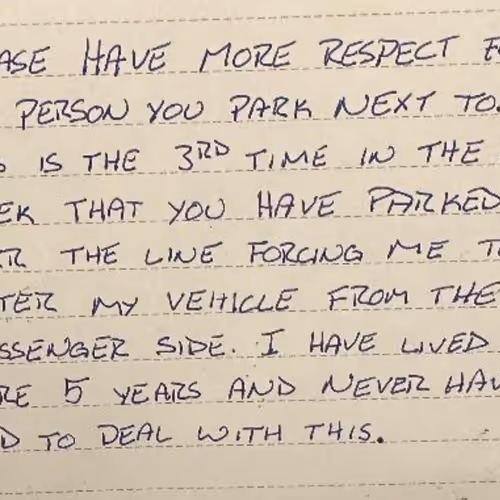 ASE HAVE MORE RESPECT F
PERSON YOU PARK NEXT TO.
S IS THE 3RD TIME IN THE
EK THAT YOU HAVE PARKED
ER THE LINE FORCING ME T
TER MY VEHICLE FROM THE
SSENGER SIDE. I HAVE LIVED
RE 5 YEARS AND NEVER HAV
D TO DEAL WITH THIS.